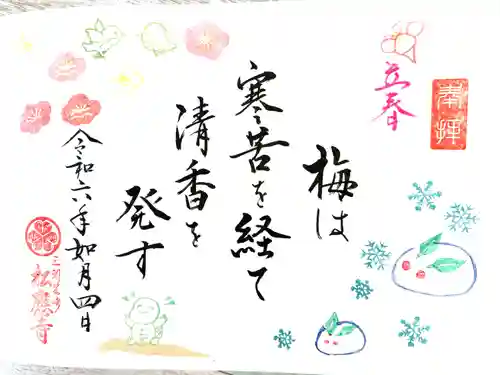 奉拝
立春
梅は
寒苦を経て
清香を
発す
令和六年如月四日
松應寺